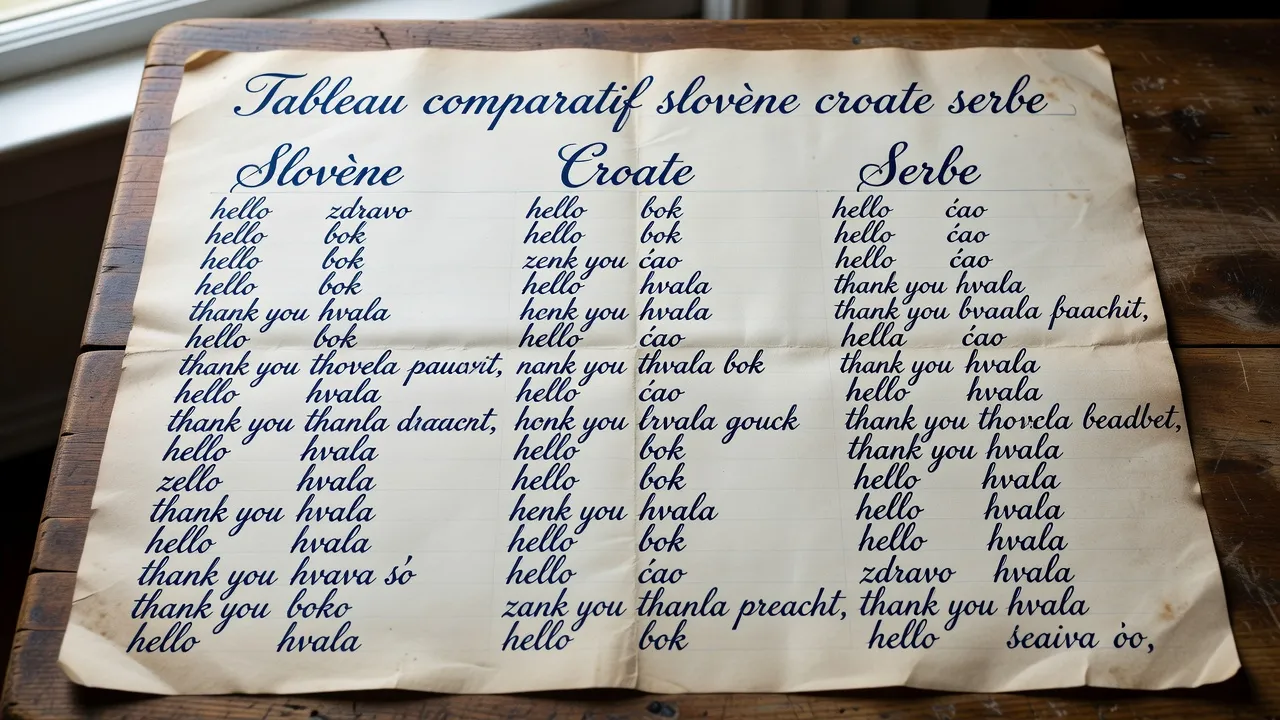 Tableau comparatif slovène croate serbe
Slovène Croate Serbe
hello zdravo hello bok hello ćao
hello bok hello bok hello ćao
hello bok zenk you ćao hello ćao
hello bok hello hvala thank you hvala
thank you hvala henk you hvala thank you bvaala faachit,
hello bok hello ćao hella ćao
thank you thovela pauavit, nank you thvala bok thank you hvala
hello hvala hello ćao hello hvala
thank you thanla draacnt, honk you brvala gouck thank you thovcla beadbet,
hello hvala hello bok thank you hvala
zello hvala hello bok hello hvala
thank you hvala henk you hvala hello hvala
hello hvala hello bok hello hvala
thank you hvava śo hello ćao zdravo hvala
thank you boko zank you thanla preacht, thank you hvala
hello hvala hello bok hello śeaiva òo,